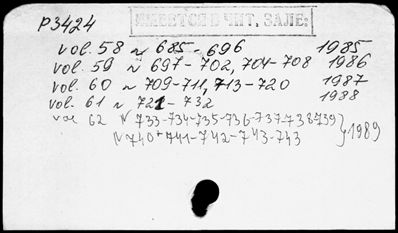 P3424
ИМЕЕТСЯ В ЧИТ. ЗАЛЕ:
vol. 58 № 685-696 1985
vol. 59 № 697-702, 704-708 1986
vol. 60 № 709-711, 713-720 1987
vol. 61 № 721-732 1988
vol 62 № 733-734-735-736-737-738-739 } 1989
№ 740+741-742-743-743